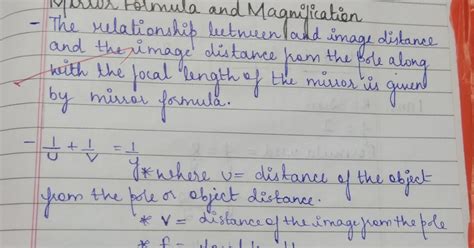 Mirror Formula and Magnification
- The relationship between and image distance
and the image distance from the pole along
with the focal length of the mirror is given
by mirror formula.
- 1/u + 1/v = 1/f
* where u = distance of the object
from the pole or object distance.
* v = distance of the image from the pole
* f =